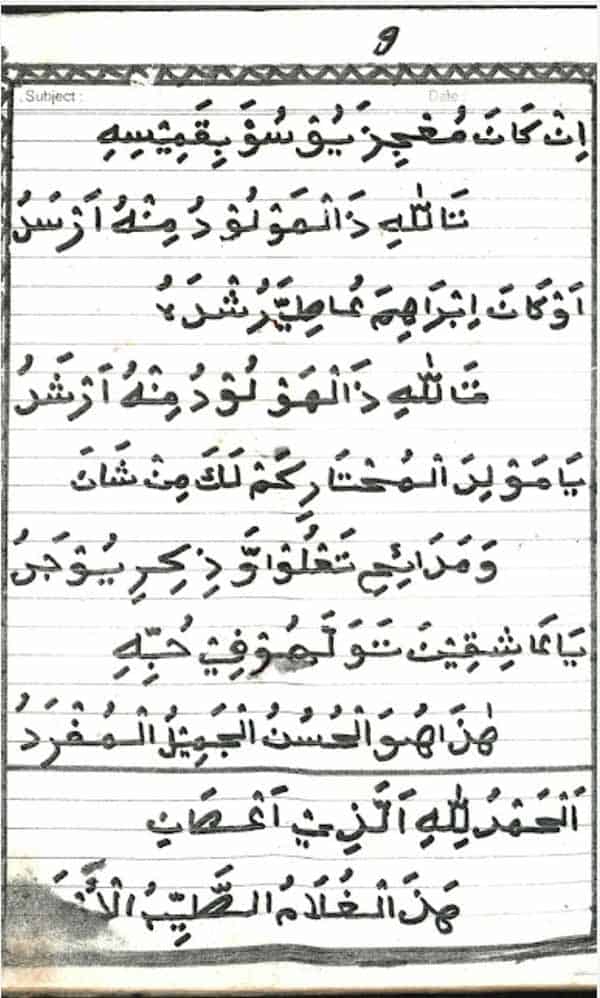 9
Subject : Date :
اِنْ كَانَ مُعْجِزَ يُوْسُوَ بِقَمِيْسِهِ
تَاللّٰهِ ذَالْمَوْلُوْدُ مِنْهُ اَرْسَدُ
اَوْكَانَ اِبْرَاهِمَ عُاطِيَّرُشْدَهُ
تَاللّٰهِ ذَالْمَوْلُوْدُ مِنْهُ اَرْشَدُ
يَا مَوْلِدَ الْمُخْتَارِكَمْ لَكَ مِنْ شَانَ
وَمَدَائِحٍ تَعْلُوْاوَّذِكِرِ يُوْجَدُ
يَاعَاشِقِيْنَ تَوَلَّهُوْفِيْ حُبِّهِ
هٰذَاهُوَالْحُسْنُ الْجَمِيْلُ الْمُفْرَدُ
اَلْحَمْدُلِلّٰهِ اَلَّذِيْ اَعْطَانِ
هَذَالْغُلَامُ الطَّيِّبُ